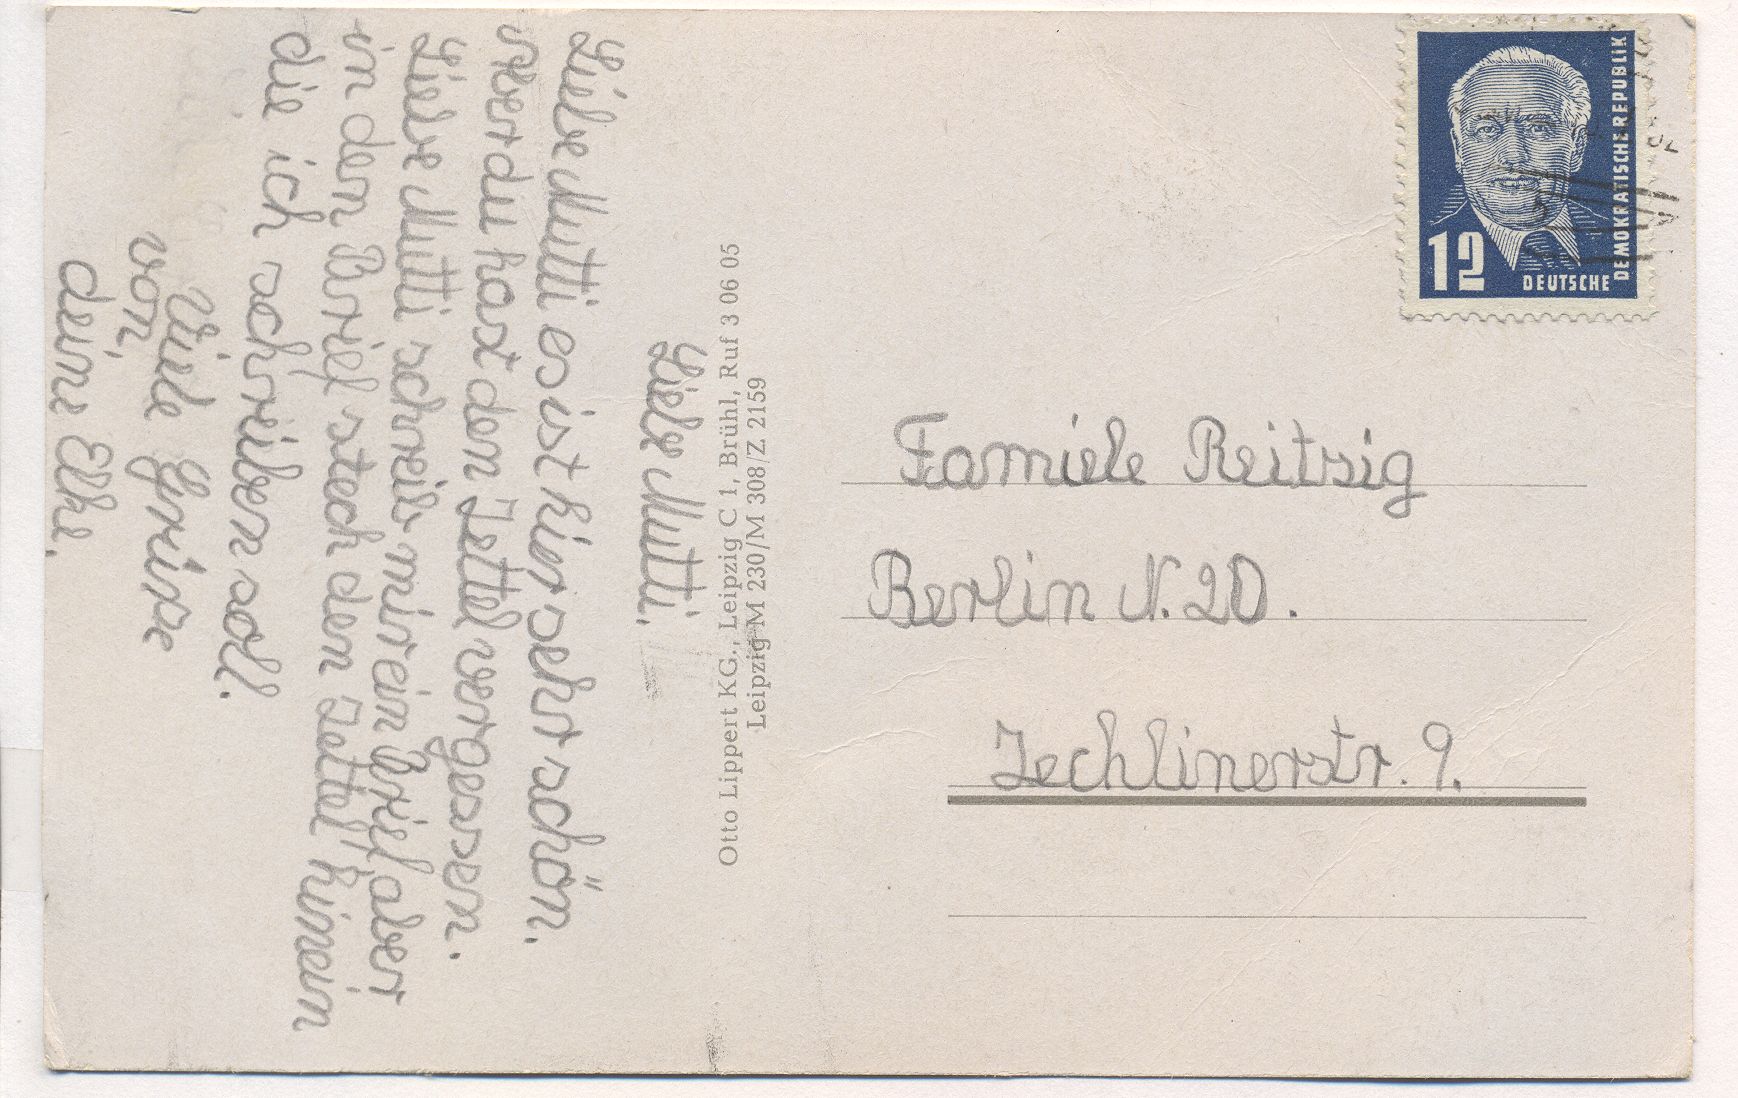 Liebe Mutti.
Liebe Mutti es ist hier sehr schön.
Aber du hast den Zettel vergesen.
Liebe Mutti schreib mir ein Brief aber
in den Brief stech den Zettel hinein
die ich schreiben soll.
Viele Grüse
von,
deine Elke,
Otto Lippert KG., Leipzig C 1, Brühl, Ruf 3 06 05
Leipzig M 230/M 308/Z 2159
12
DEUTSCHE
DEMOKRATISCHE REPUBLIK
Famiele Reitzig
Berlin N. 20.
Zechlinerstr. 9.